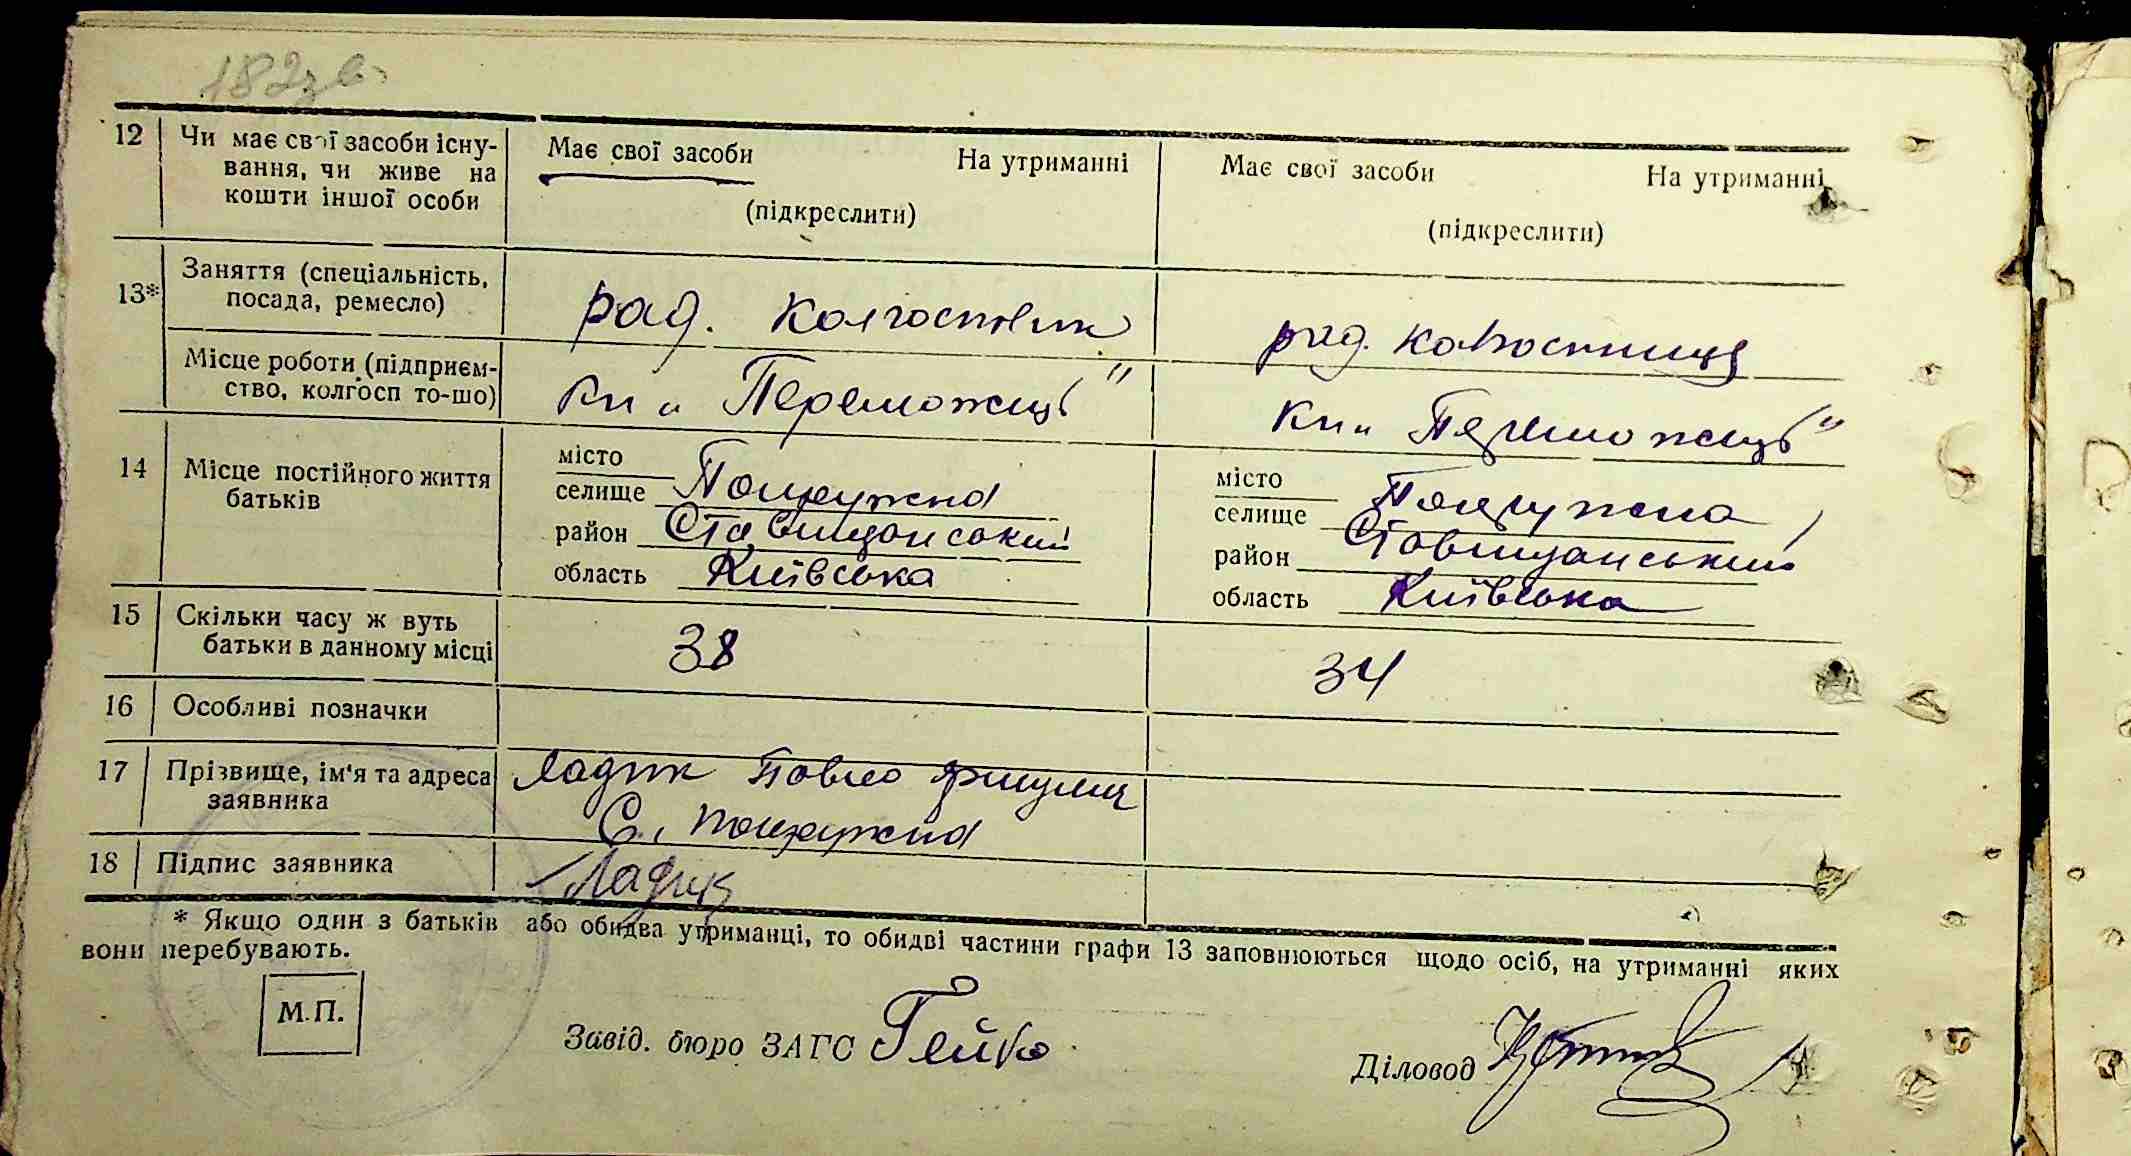 182зв
12 Чи має свої засоби існу- Має свої засоби На утриманні Має свої засоби На утриманні
вання, чи живе на
кошти іншої особи (підкреслити) (підкреслити)
13* Заняття (спеціальність,
посада, ремесло) ряд. колгоспник ряд. колгоспниця
Місце роботи (підприєм-
ство, колгосп то-що) кп „Переможець" кп „Переможець"
14 Місце постійного життя
батьків
місто місто
селище Полружна селище
район Ставищанський район Ставищанський
область Київська область Київська
15 Скільки часу ж вуть
батьки в данному місці 38 34
16 Особливі позначки
17 Прізвище, ім'я та адреса Ладик Павло
заявника С.
18 Підпис заявника Ладик
* Якщо один з батьків або обидва утриманці, то обидві частини графи 13 заповнюються щодо осіб, на утриманні яких
вони перебувають.
М.П.
Завід. бюро ЗАГС Гейко
Діловод